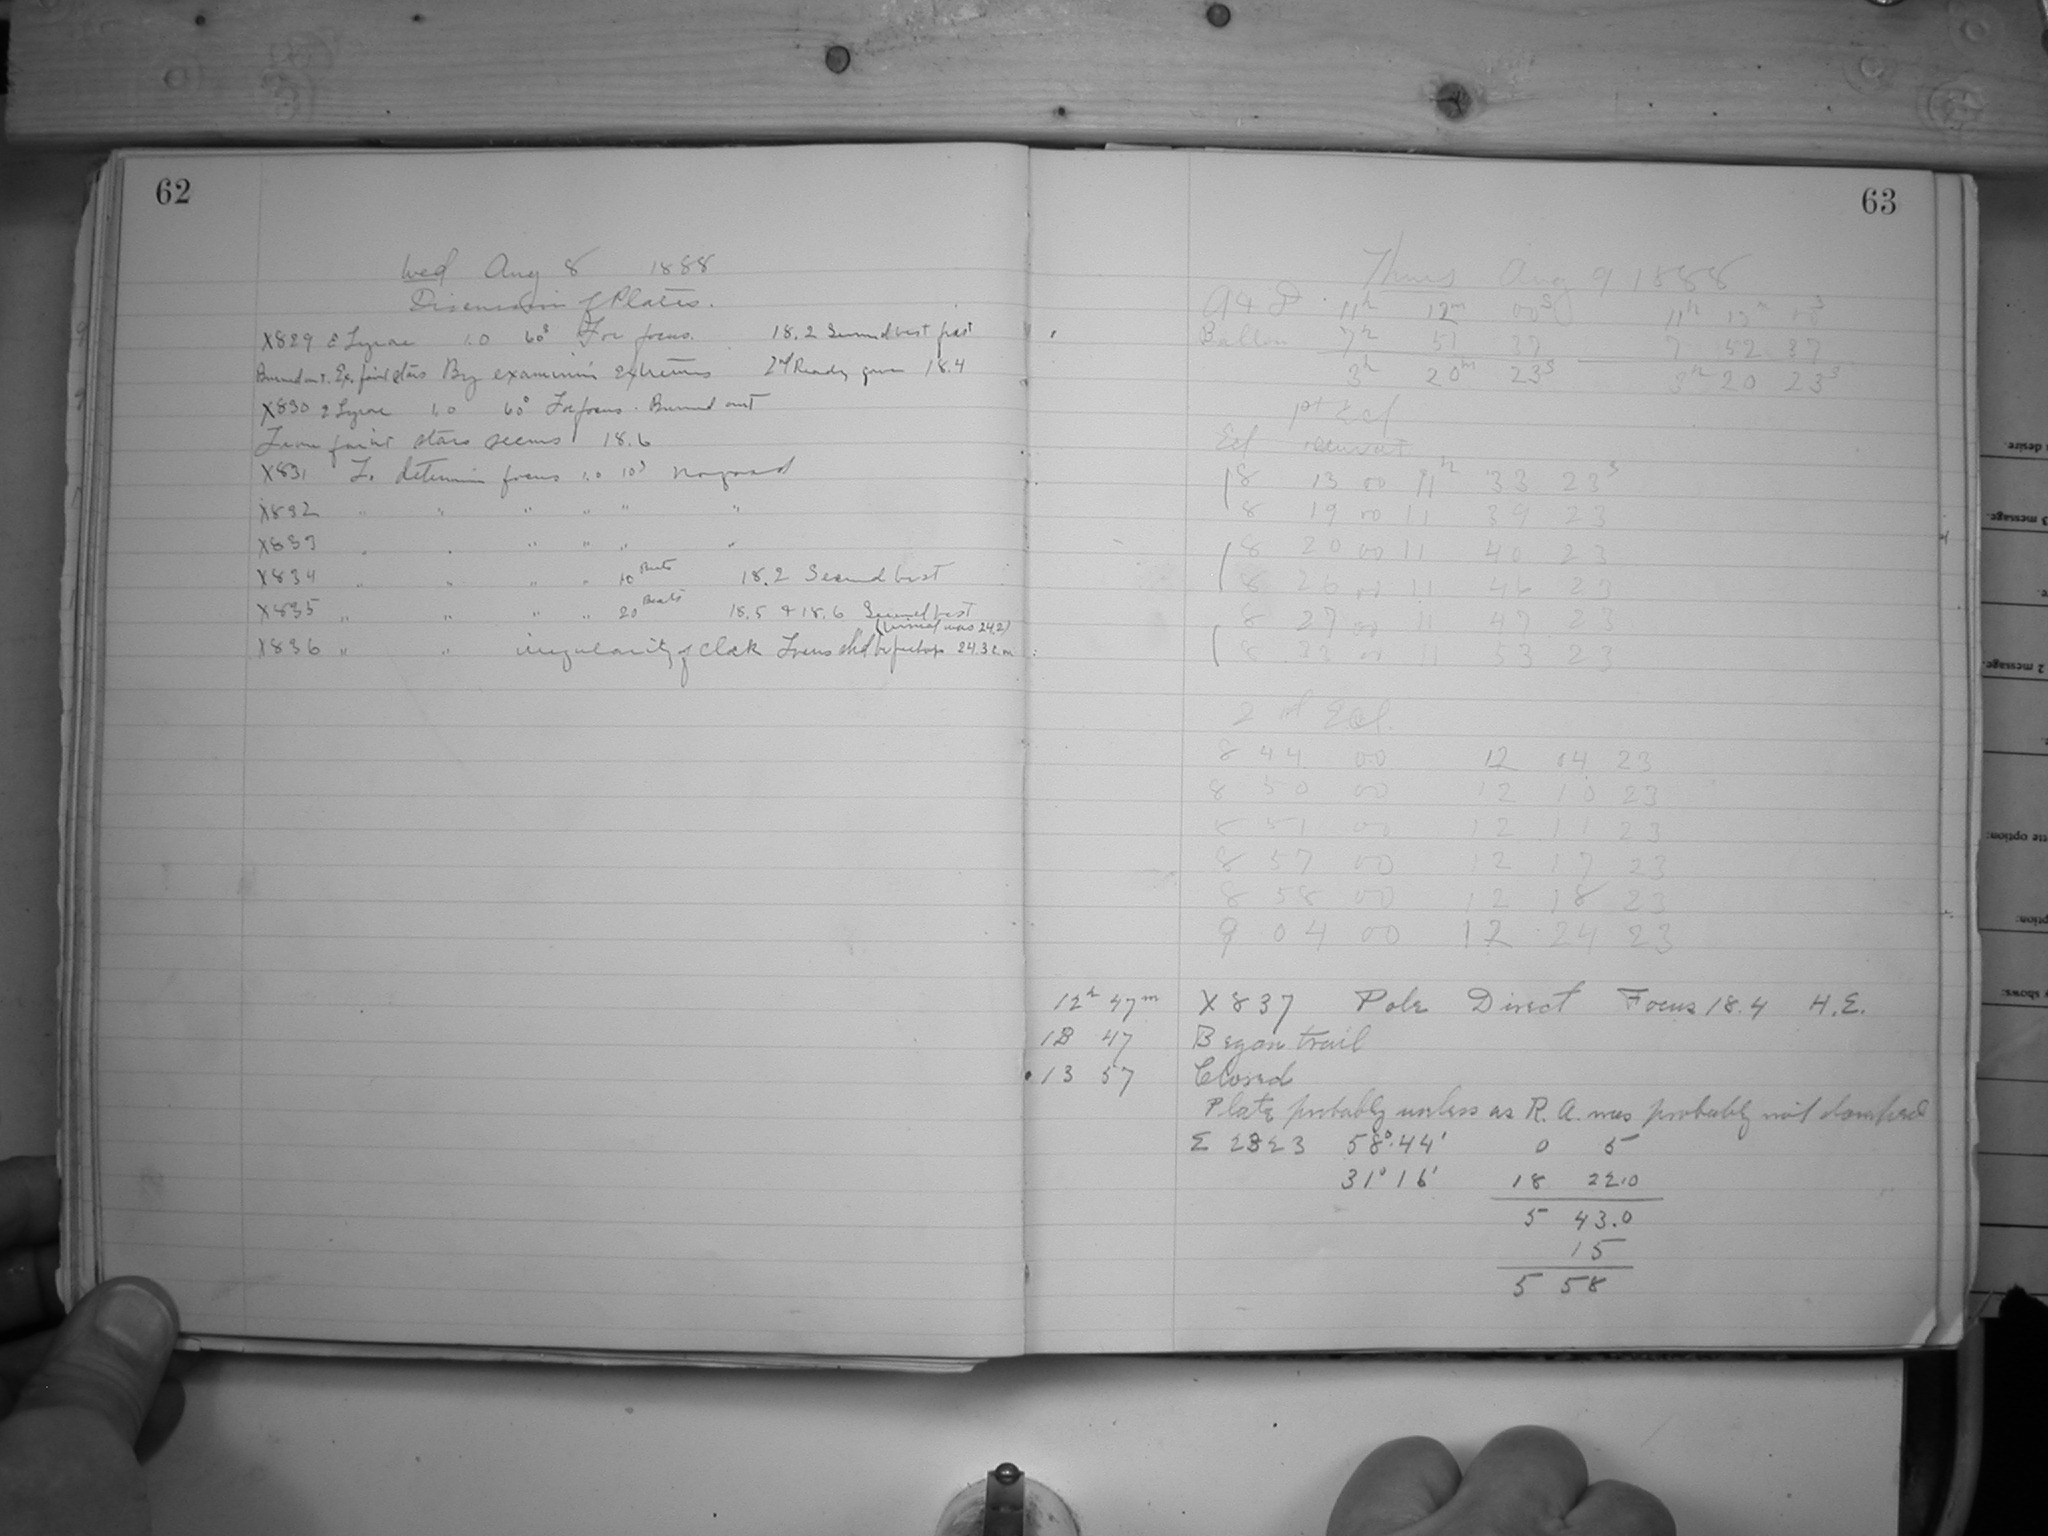 62
Wed Aug 8 1888
Discussion of Plates.
X829 ε Lyrae 1.0 60s For focus. 18.2 Second best first
Burned out. Ex. faint stars By examining extremes 24 Ready gives 18.4
X830 ε Lyrae 1.0 60s For focus. Burned out
From faint stars seems 18.6
X831 To determine focus 1.0 10s no good
X832 " " " " " "
X833 " " " " " "
X834 " " " " 10 Beats 18.2 Second best
X835 " " " " 20 Beats 18.5 & 18.6 Second best
X836 " " irregularity of clock Focus shd be perhaps 24.3
63
Thurs Aug 9 1888
11h 12m 00s 11h 13m 10s
7h 51 37 7 52 37
3h 20m 23s 3h 20 23s
1st Ecl
Ecl
8 13 00 11h 33 23s
8 19 00 11 39 23
8 20 00 11 40 23
8 26 00 11 46 23
8 27 00 11 47 23
8 33 00 11 53 23
2nd Ecl.
8 44 00 12 04 23
8 50 00 12 10 23
8 51 00 12 11 23
8 57 00 12 17 23
8 58 00 12 18 23
9 04 00 12 24 23
12h 47m X837 Pole Direct Focus 18.4 H.E.
13 47 Began trail
13 57 Closed
Plate probably useless as R.A. was probably not clamped
Σ 2323 58°.44' 0 5
31° 16' 18 22.0
5 43.0
15
5 58
desire.
3 message.
2 message.
option:
option:
shows: